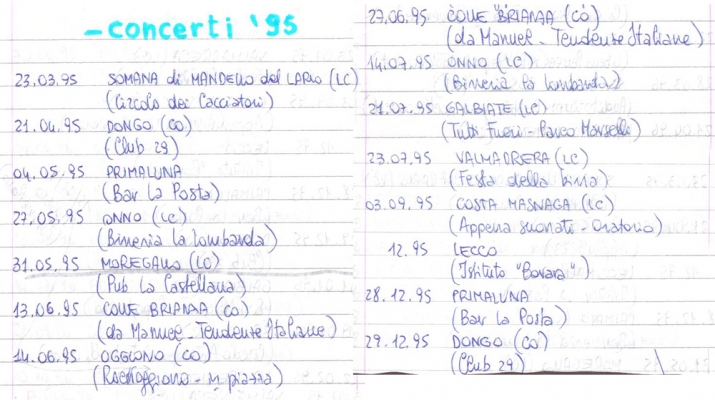 - concerti '95
23.03.95 SOMANA di MANDELLO del LARIO (LC)
(Circolo dei Cacciatori)
21.04.95 DONGO (CO)
(Club 29)
04.05.95 PRIMALUNA
(Bar La Posta)
27.05.95 ONNO (LC)
(Birreria la Lombarda)
31.05.95 MOREGALLO (LC)
(Pub La Castellana)
13.06.95 COLLE BRIANZA (CO)
(da Manuel - Tendente Italiane)
14.06.95 OGGIONO (CO)
(Rockoggiono - in piazza)
27.06.95 COLLE BRIANZA (CO)
(da Manuel - Tendente Italiane)
14.07.95 ONNO (LC)
(Birreria la Lombarda)
21.07.95 GALBIATE (LC)
(Tutti Fuori - Parco Monselli)
23.07.95 VALMADRERA (LC)
(Festa della birra)
03.09.95 COSTA MASNAGA (LC)
(Appena suonati - Oratorio)
12.95 LECCO
(Istituto "Bovara")
28.12.95 PRIMALUNA
(Bar La Posta)
29.12.95 DONGO (CO)
(Club 29)